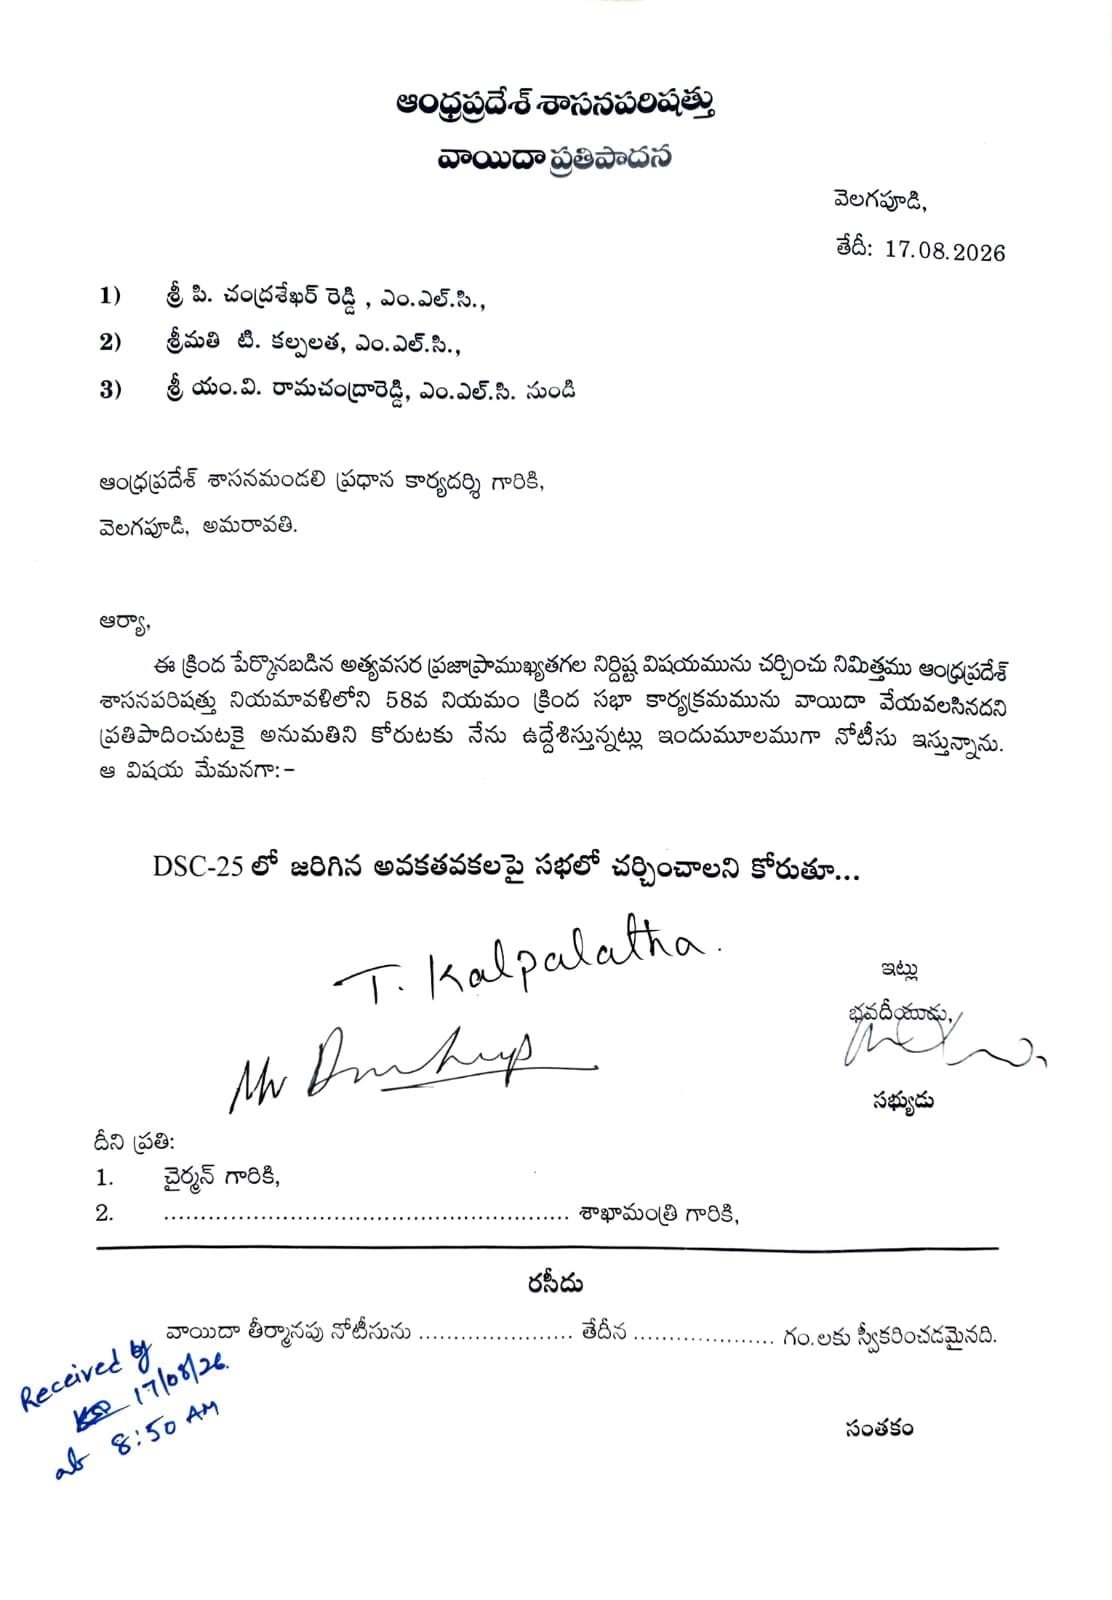 ఆంధ్రప్రదేశ్ శాసనపరిషత్తు
వాయిదా ప్రతిపాదన
వెలగపూడి,
తేదీ: 17.08.2026
1) శ్రీ పి. చంద్రశేఖర్ రెడ్డి , ఎం.ఎల్.సి.,
2) శ్రీమతి టి. కల్పలత, ఎం.ఎల్.సి.,
3) శ్రీ యం.వి. రామచంద్రారెడ్డి, ఎం.ఎల్.సి. నుండి
ఆంధ్రప్రదేశ్ శాసనమండలి ప్రధాన కార్యదర్శి గారికి,
వెలగపూడి, అమరావతి.
ఆర్యా,
ఈ క్రింద పేర్కొనబడిన అత్యవసర ప్రజాప్రాముఖ్యతగల నిర్దిష్ట విషయమును చర్చించు నిమిత్తము ఆంధ్రప్రదేశ్
శాసనపరిషత్తు నియమావళిలోని 58వ నియమం క్రింద సభా కార్యక్రమమును వాయిదా వేయవలసినదని
ప్రతిపాదించుటకై అనుమతిని కోరుటకు నేను ఉద్దేశిస్తున్నట్లు ఇందుమూలముగా నోటీసు ఇస్తున్నాను.
ఆ విషయ మేమనగా:-
DSC-25 లో జరిగిన అవకతవకలపై సభలో చర్చించాలని కోరుతూ...
T. Kalpalatha.
ఇట్లు
భవదీయుడు,
సభ్యుడు
దీని ప్రతి:
1. ఛైర్మన్ గారికి,
2. ....................................................... శాఖామంత్రి గారికి,
రసీదు
వాయిదా తీర్మానపు నోటీసును ...................... తేదీన .................... గం.లకు స్వీకరించడమైనది.
Received by
17/08/26.
at 8:50 AM
సంతకం